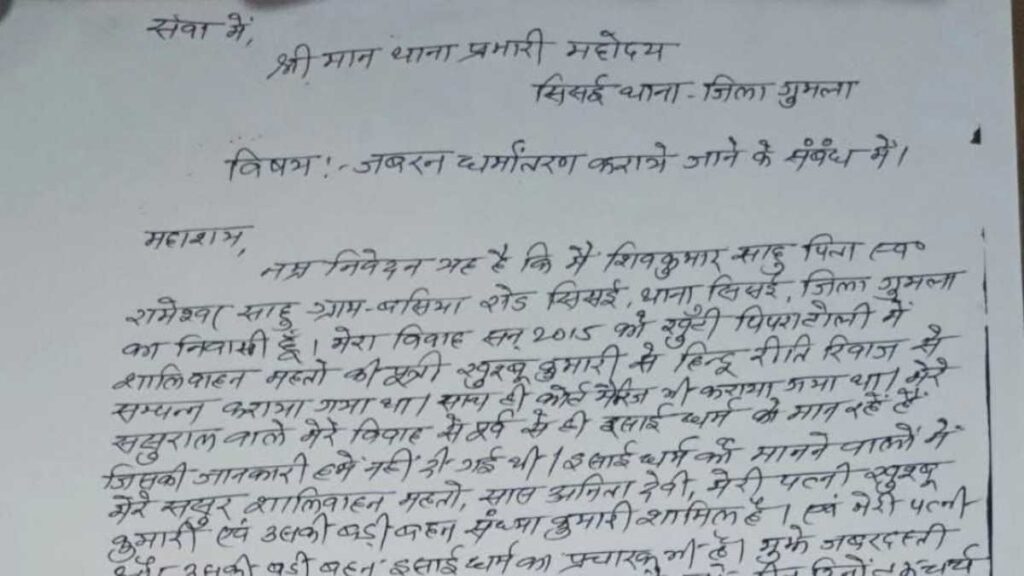 सेवा में,
श्री मान थाना प्रभारी महोदय
सिसई थाना - जिला गुमला
विषय :- जबरन धर्मांतरण कराये जाने के संबंध में।
महाशय,
नम्र निवेदन यह है कि मैं शिवकुमार साहु पिता स्व०
रामेश्वर साहु ग्राम - बसिया रोड सिसई, थाना सिसई, जिला गुमला
का निवासी हूँ। मेरा विवाह सन् 2015 को खुँटी पिपराटोली में
शालिवाहन महतो की पुत्री खुशबू कुमारी से हिन्दू रीति रिवाज से
सम्पन्न कराया गया था। साथ ही कोर्ट मैरिज भी कराया गया था। मेरे
ससुराल वाले मेरे विवाह से पूर्व से ही इसाई धर्म को मान रहें हैं
जिसकी जानकारी हमें नहीं दी गई थी। इसाई धर्म को मानने वालों में
मेरे ससुर शालिवाहन महतो, सास अनिता देवी, मेरी पत्नी खुशबू
कुमारी एवं उसकी बड़ी बहन संध्या कुमारी शामिल है। एवं मेरी पत्नी
उसकी बड़ी बहन इसाई धर्म का प्रचारक भी है। मुझे जबरदस्ती